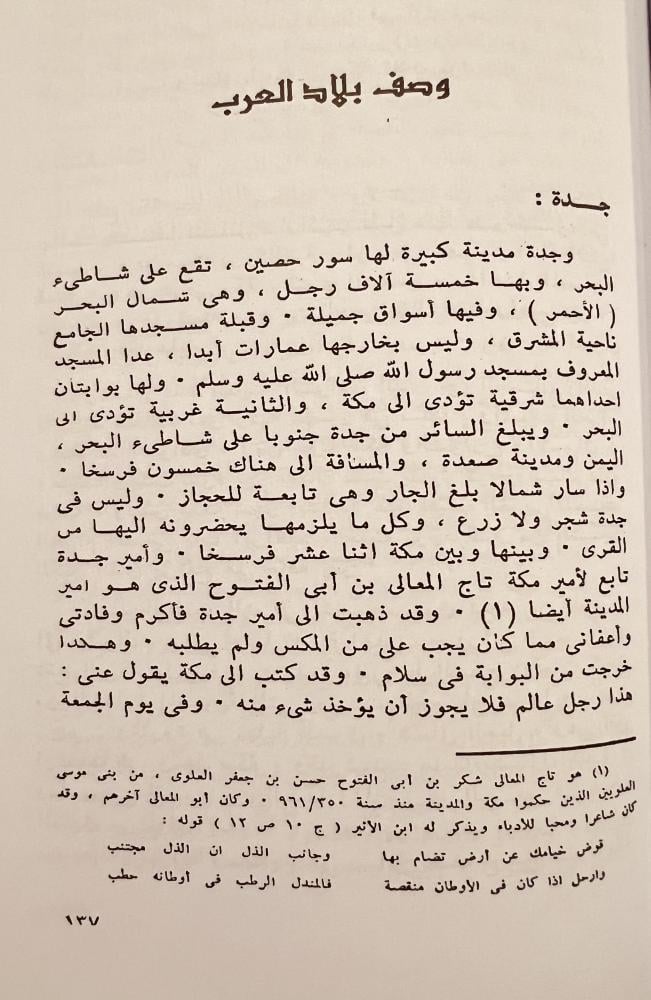 وصف بلاد العرب
جـــدة :
وجدة مدينة كبيرة لها سور حصين ، تقع على شاطىء
البحر ، وبها خمسة آلاف رجل ، وهى شمال البحر
( الأحمر ) ، وفيها أسواق جميلة ٠ وقبلة مسجدها الجامع
ناحية المشرق ، وليس بخارجها عمارات أبدا ، عدا المسجد
المعروف بمسجد رسول الله صلى الله عليه وسلم ٠ ولها بوابتان
احداهما شرقية تؤدى الى مكة ، والثانية غربية تؤدى الى
البحر ٠ ويبلغ السائر من جدة جنوبا على شاطىء البحر ،
اليمن ومدينة صعدة ، والمسافة الى هناك خمسون فرسخا ٠
واذا سار شمالا بلغ الجار وهى تابعة للحجاز ٠ وليس فى
جدة شجر ولا زرع ، وكل ما يلزمها يحضرونه اليها من
القرى ٠ وبينها وبين مكة اثنا عشر فرسخا ٠ وأمير جدة
تابع لأمير مكة تاج المعالى بن أبى الفتوح الذى هو أمير
المدينة أيضا (١) ٠ وقد ذهبت الى أمير جدة فأكرم وفادتى
وأعفانى مما كان يجب على من المكس ولم يطلبه ٠ وهكذا
خرجت من البوابة فى سلام ٠ وقد كتب الى مكة يقول عنى :
هذا رجل عالم فلا يجوز أن يؤخذ شىء منه ٠ وفى يوم الجمعة
(١) هو تاج المعالى شكر بن أبى الفتوح حسن بن جعفر العلوى ، من بنى موسى
العلويين الذين حكموا مكة والمدينة منذ سنة ٩٦١/٣٥٠ ٠ وكان أبو المعالى آخرهم ، وقد
كان شاعرا ومحبا للأدباء ويذكر له ابن الأثير ( ج ١٠ ص ١٢ ) قوله :
قوض خيامك عن أرض تضام بها وجانب الذل ان الذل مجتنب
وارحل اذا كان فى الأوطان منقصة فالمندل الرطب فى أوطانه حطب
١٣٧